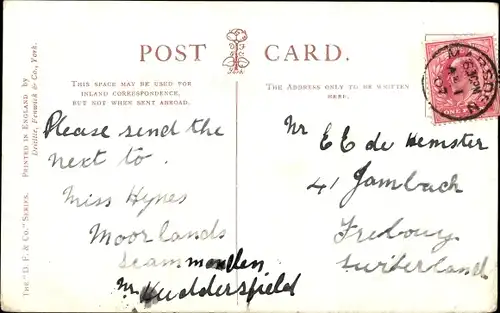 POST CARD.
THIS SPACE MAY BE USED FOR
INLAND CORRESPONDENCE,
BUT NOT WHEN SENT ABROAD.
THE ADDRESS ONLY TO BE WRITTEN
HERE.
Please send the
next to.
Miss Hynes
Moorlands
Scammonden
Nr Huddersfield
Mr E E de Hemster
41 Jambach
Frebourg
Switerland
THE "D. F. & Co." SERIES.
PRINTED IN ENGLAND BY
Delittle, Fenwick & Co., York.
MARSDEN